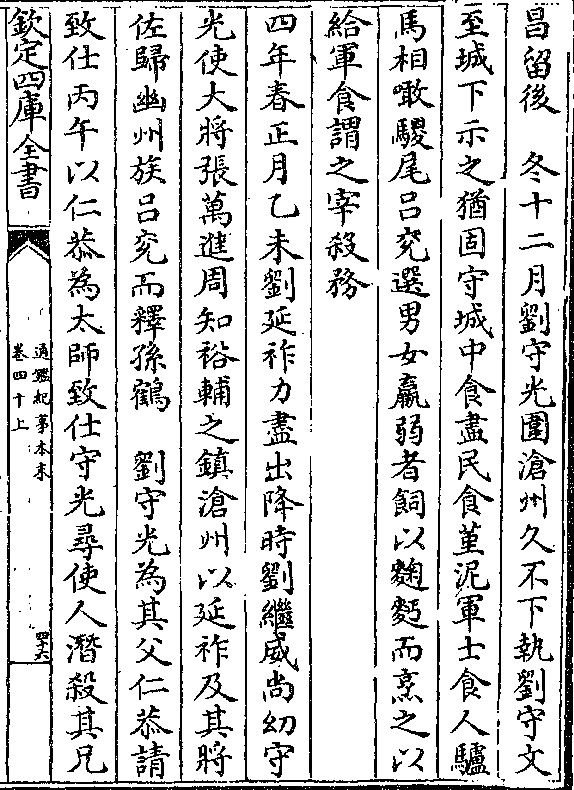 昌留後　冬十二月劉守光圍滄州久不下執劉守文
至城下示之猶固守城中食盡民食堇泥軍士食人驢
馬相噉騣尾吕兖選男女羸弱者飼以麴麪而烹之以
給軍食謂之宰殺務
四年春正月乙未劉延祚力盡出降時劉繼威尚幼守
光使大將張萬進周知裕輔之鎮滄州以延祚及其將
佐歸幽州族吕兖而釋孫鶴　劉守光為其父仁恭請
致仕丙午以仁恭為太師致仕守光尋使人潛殺其兄
欽定四庫全書
通鑑紀事本末
卷四十上
四十六